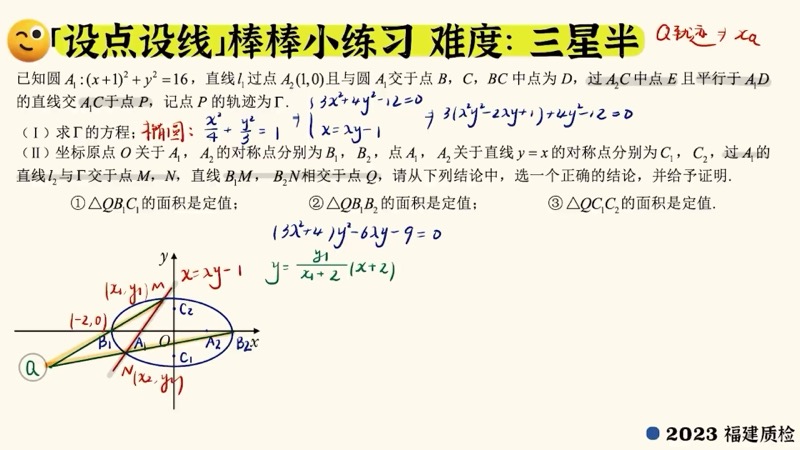 「设点设线」棒棒小练习 难度：三星半
Q轨迹 → xQ
已知圆 A₁:(x+1)²+y²=16，直线 l₁ 过点 A₂(1,0)且与圆 A₁交于点 B，C，BC 中点为 D，过 A₂C 中点 E 且平行于 A₁D
的直线交 A₁C于点 P，记点 P 的轨迹为Γ．
{3x²+4y²-12=0
x=λy-1
⇒ 3(λ²y²-2λy+1)+4y²-12=0
（Ⅰ）求Γ的方程；椭圆：x²/4+y²/3=1 ⇒
（Ⅱ）坐标原点 O 关于 A₁，A₂的对称点分别为 B₁，B₂，点 A₁，A₂关于直线 y=x 的对称点分别为 C₁，C₂，过 A₁的
直线 l₂与Γ交于点 M，N，直线 B₁M，B₂N相交于点 Q，请从下列结论中，选一个正确的结论，并给予证明．
①△QB₁C₁的面积是定值；②△QB₁B₂的面积是定值；③△QC₁C₂的面积是定值.
(3λ²+4)y²-6λy-9=0
y=y₁/(x₁+2)(x+2)
y
x=λy-1
(x₁,y₁) M
C₂
(-2,0)
B₁ A₁ O A₂ B₂ x
C₁
Q
N(x₂,y₂)
2023 福建质检